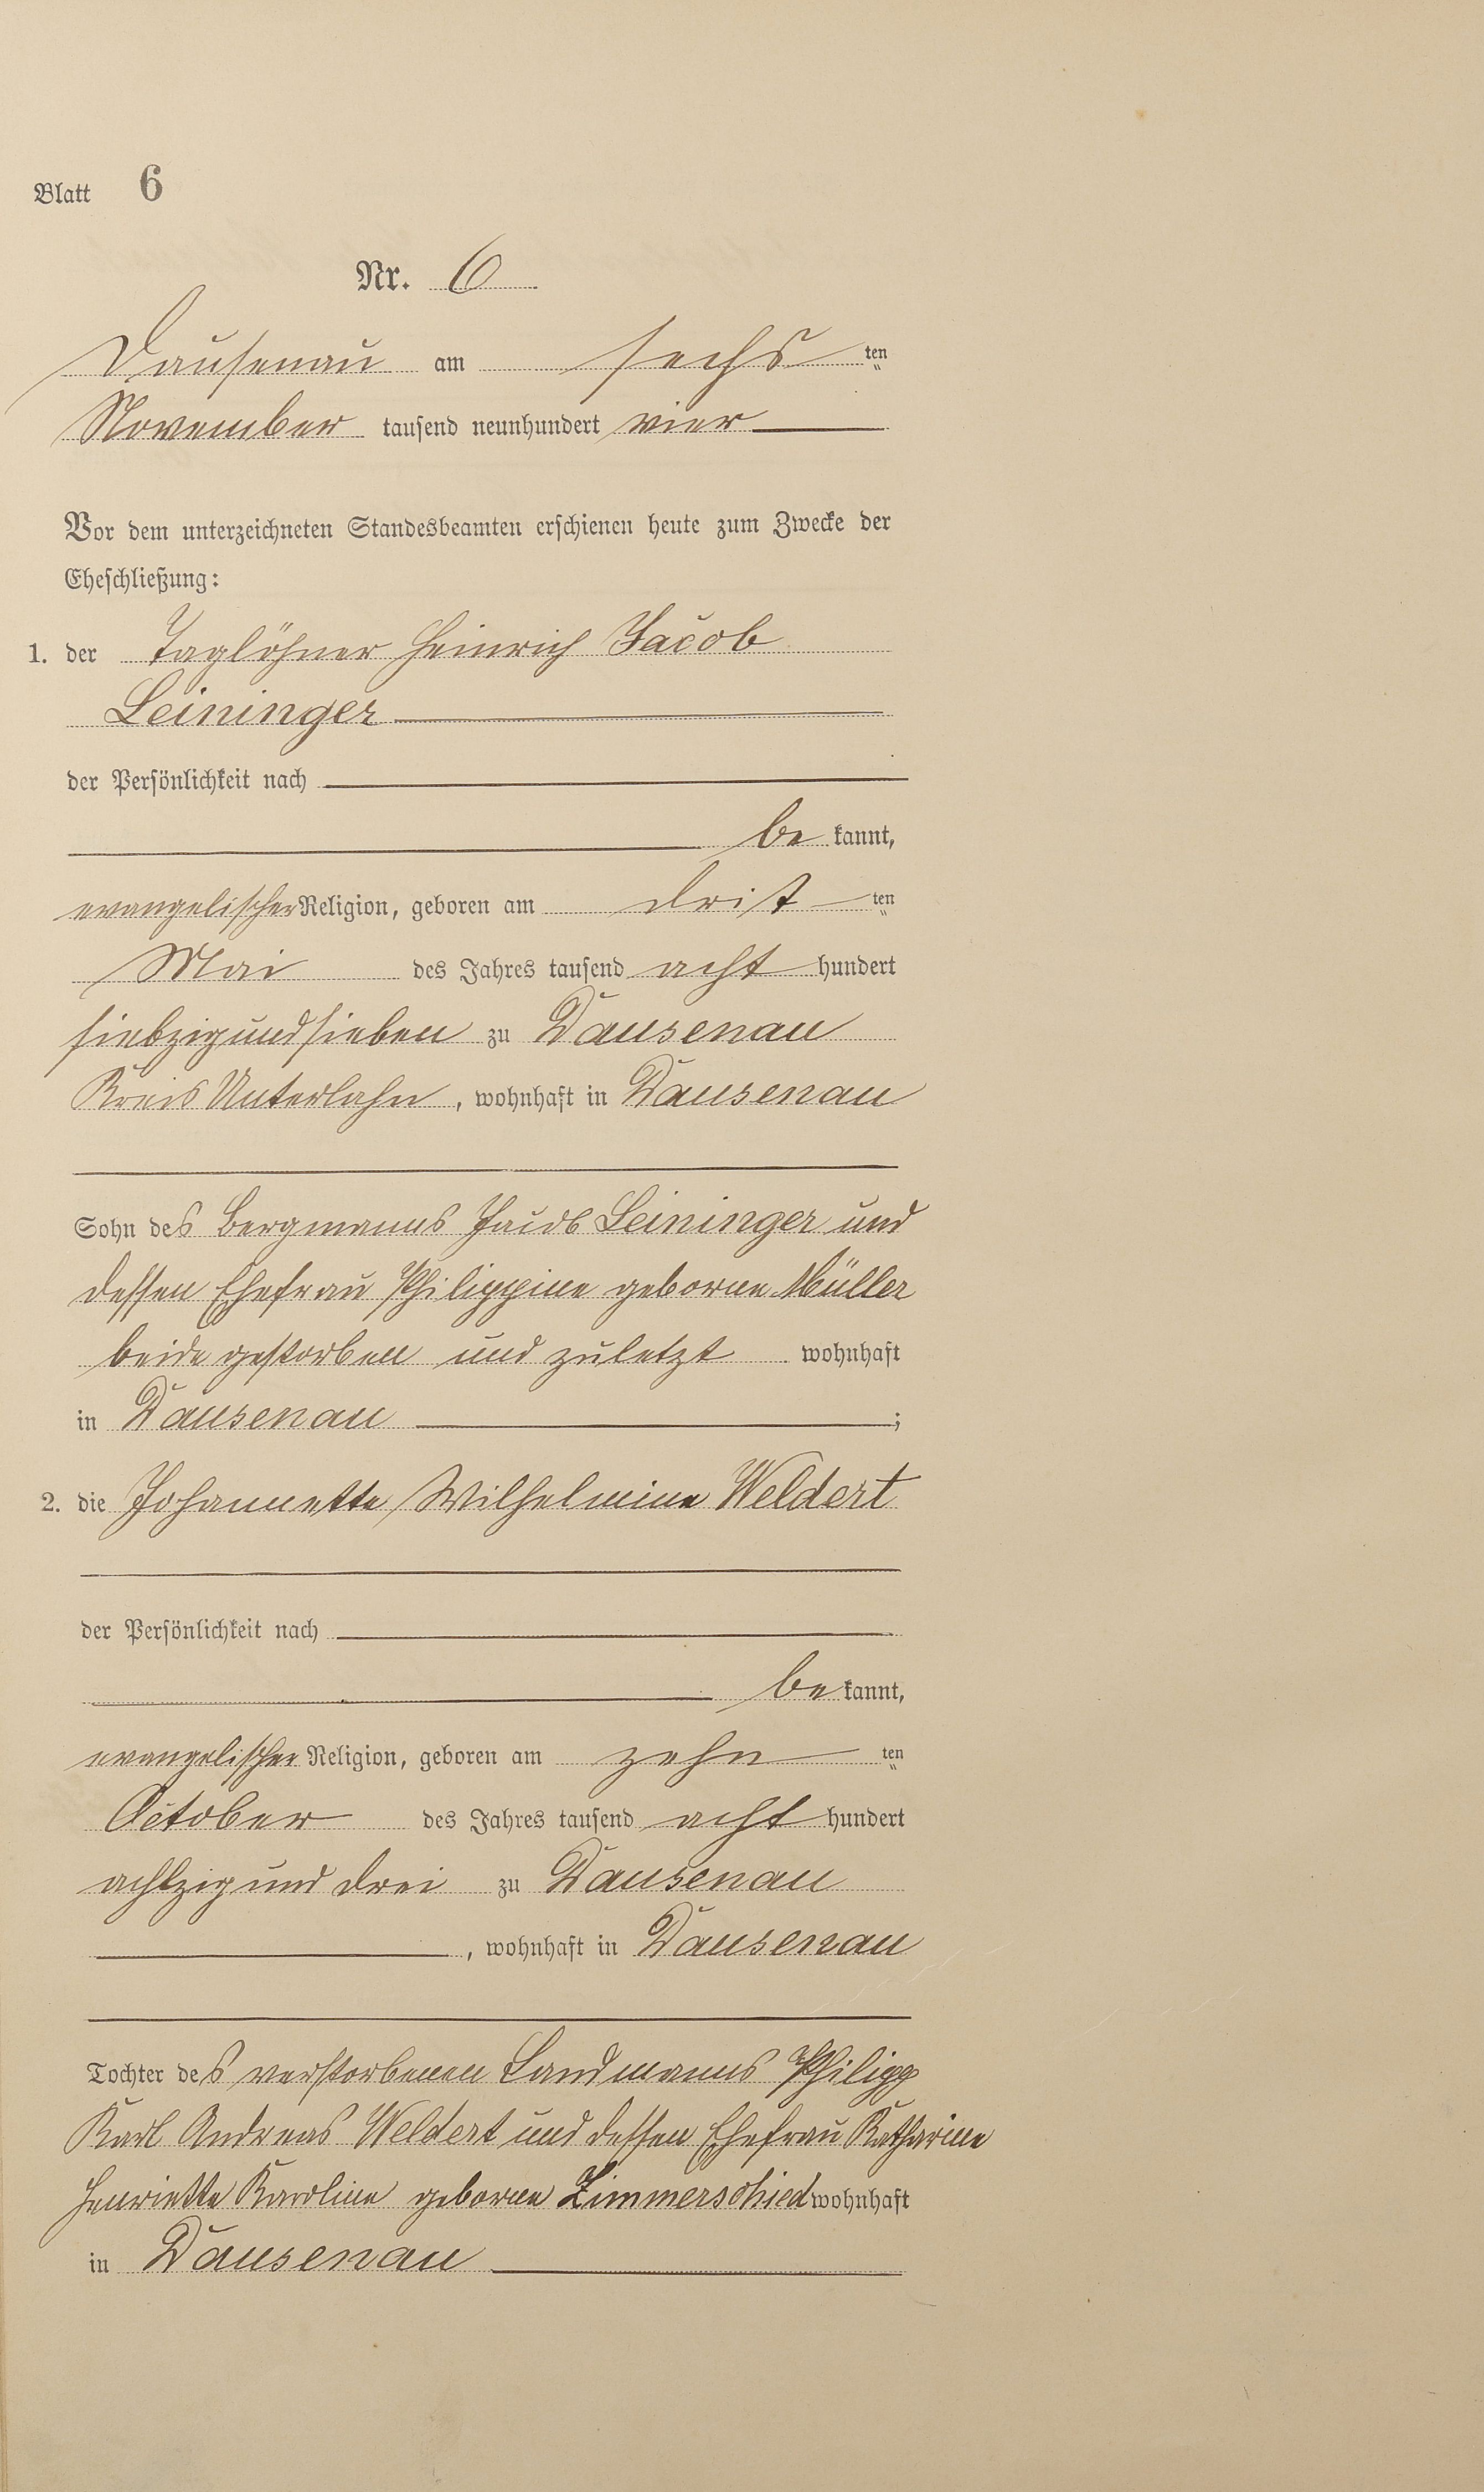 Blatt 6
Nr. 6
Dausenau am sechs ten
November tausend neunhundert vier
Vor dem unterzeichneten Standesbeamten erschienen heute zum Zwecke der
Eheschließung:
1. der Taglöhner Heinrich Jacob
Leininger
der Persönlichkeit nach
be kannt,
evangelischer Religion, geboren am drit ten
Mai des Jahres tausend acht hundert
siebzigundsieben zu Dausenau
Kreis Unterlahn, wohnhaft in Dausenau
Sohn des Bergmanns Jacob Leininger und
dessen Ehefrau Philippine geborne Müller
beide gestorben und zuletzt wohnhaft
in Dausenau ;
2. die Johannette Wilhelmine Weldert
der Persönlichkeit nach
be kannt,
evangelischer Religion, geboren am zehn ten
October des Jahres tausend acht hundert
achtzig und drei zu Dausenau
, wohnhaft in Dausenau
Tochter des verstorbenen Landmanns Philipp
Karl Andreas Weldert und dessen Ehefrau Katharine
Henriette Karoline geborne Zimmerschied wohnhaft
in Dausenau